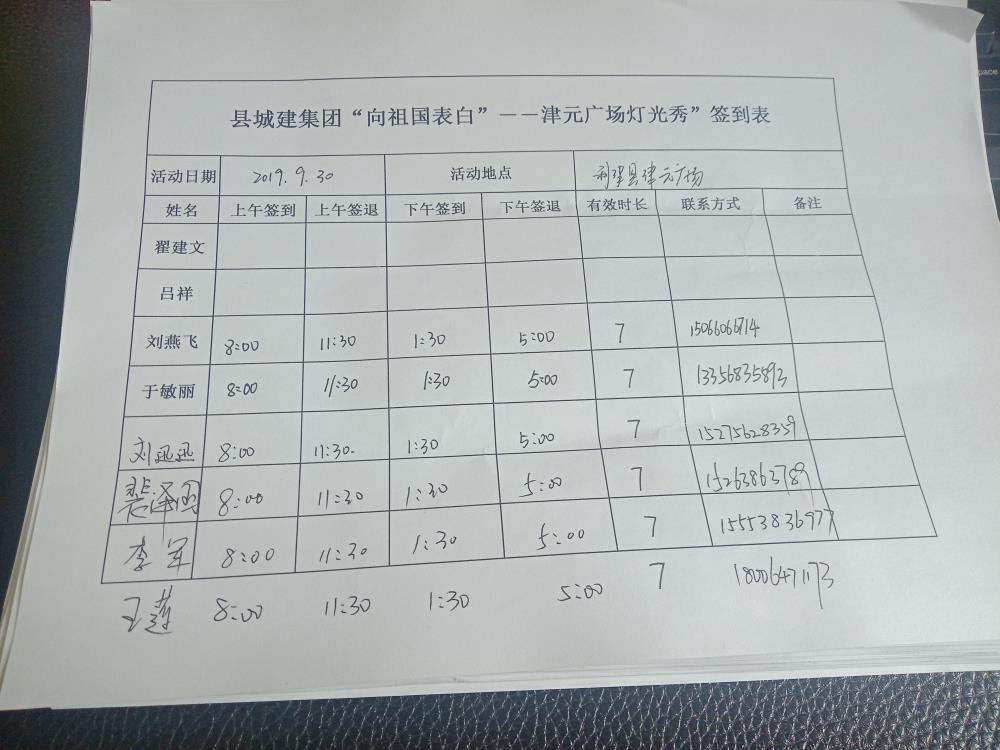 县城建集团“向祖国表白”——津元广场灯光秀”签到表
活动日期 2019.9.30 活动地点 利津县津元广场
姓名 上午签到 上午签退 下午签到 下午签退 有效时长 联系方式 备注
翟建文
吕祥
刘燕飞 8:00 11:30 1:30 5:00 7 15066066714
于敏丽 8:00 11:30 1:30 5:00 7 13356835893
刘迅迅 8:00 11:30. 1:30 5:00 7 15275628359
裴泽图 8:00 11:30 1:30 5:00 7 15263863789
李军 8:00 11:30 1:30 5:00 7 15553836977
王莲 8:00 11:30 1:30 5:00 7 18006471173
space